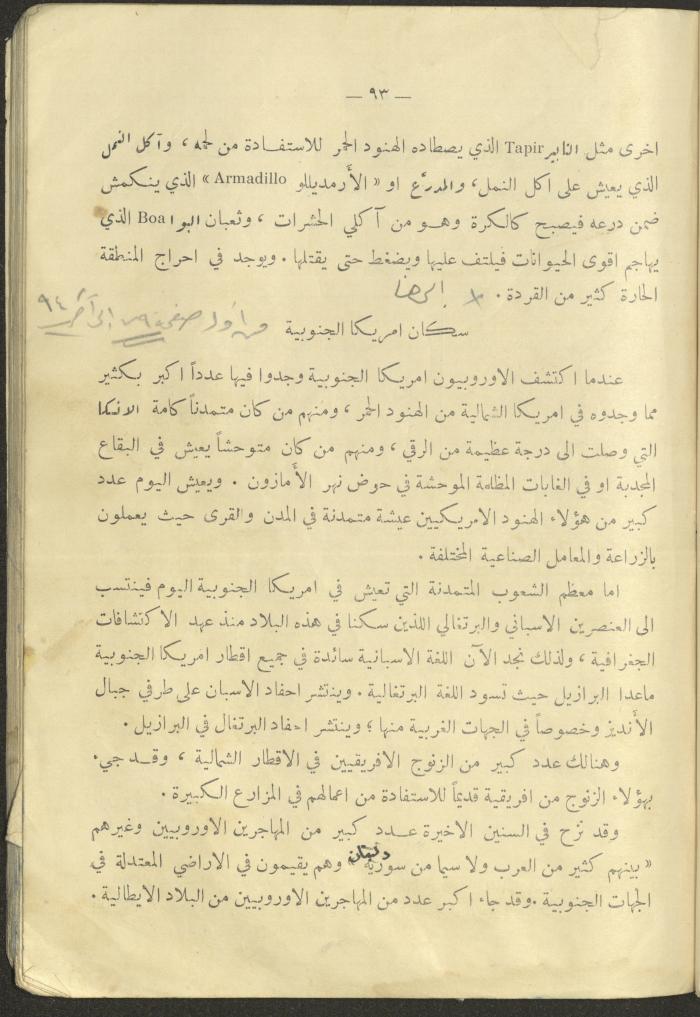 — ٩٣ —
اخرى مثل التابير Tapir الذي يصطاده الهنود الحمر للاستفادة من لحمه ، وآكل النمل
الذي يعيش على اكل النمل، والمدرَّع او « الأَرمديللو Armadillo » الذي ينكمش
ضمن درعه فيصبح كالكرة وهو من آكلي الحشرات ، وثعبان البوا Boa الذي
يهاجم اقوى الحيوانات فيلتف عليها ويضغط حتى يقتلها . ويوجد في احراج المنطقة
الحارة كثير من القردة . × الى هنا
سكان امريكا الجنوبية من اول صفحة ٨٩ الى آخر ٩٤
عندما اكتشف الاوروبيون امريكا الجنوبية وجدوا فيها عدداً اكبر بكثير
مما وجدوه في امريكا الشمالية من الهنود الحمر ، ومنهم من كان متمدناً كامة الانكا
التي وصلت الى درجة عظيمة من الرقي ، ومنهم من كان متوحشاً يعيش في البقاع
المجدبة او في الغابات المظلمة الموحشة في حوض نهر الأمازون . ويعيش اليوم عدد
كبير من هؤلاء الهنود الامريكيين عيشة متمدنة في المدن والقرى حيث يعملون
بالزراعة والمعامل الصناعية المختلفة .
اما معظم الشعوب المتمدنة التي تعيش في امريكا الجنوبية اليوم فينتسب
الى العنصرين الاسباني والبرتغالي اللذين سكنا في هذه البلاد منذ عهد الاكتشافات
الجغرافية ، ولذلك نجد الآن اللغة الاسبانية سائدة في جميع اقطار امريكا الجنوبية
ماعدا البرازيل حيث تسود اللغة البرتغالية . وينتشر احفاد الاسبان على طرفي جبال
الأنديز وخصوصاً في الجهات الغربية منها ؛ وينتشر احفاد البرتغال في البرازيل .
وهنالك عدد كبير من الزنوج الافريقيين في الاقطار الشمالية ، وقد جيء
بهؤلاء الزنوج من افريقية قديماً للاستفادة من اعمالهم في المزارع الكبيرة .
وقد نزح في السنين الاخيرة عدد كبير من المهاجرين الاوروبيين وغيرهم
« بينهم كثير من العرب ولا سيما من سورية ولبنان » وهم يقيمون في الاراضي المعتدلة في
الجهات الجنوبية . وقد جاء اكبر عدد من المهاجرين الاوروبيين من البلاد الايطالية .